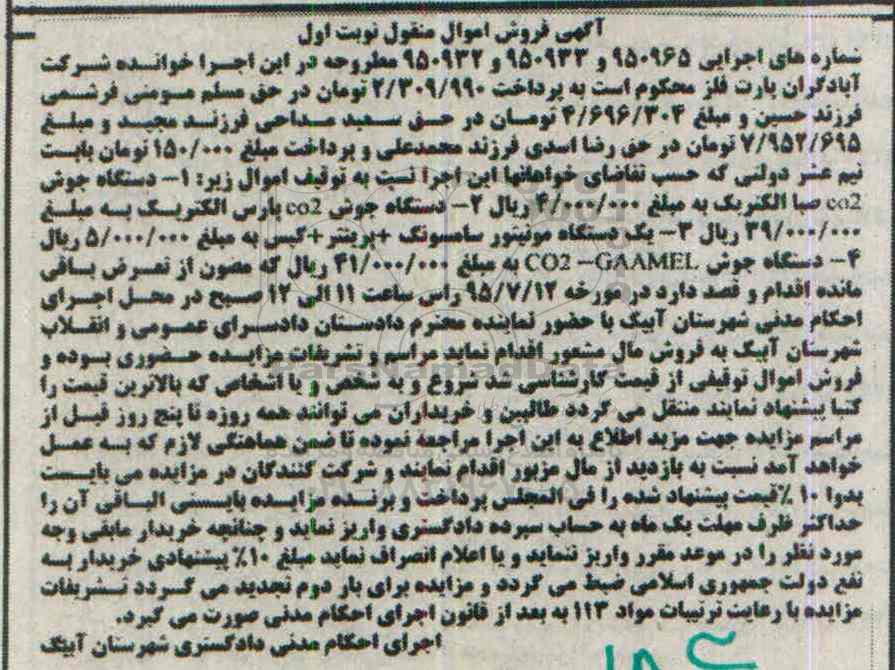 آگهی فروش اموال منقول نوبت اول
شماره های اجرایی ۹۵۰۹۶۵ و ۹۵۰۹۳۳ و ۹۵۰۹۳۲ مطروحه در این اجرا خوانده شرکت
آبادگران پارت فلز محکوم است به پرداخت ۲/۳۰۹/۹۹۰ تومان در حق مسلم مومنی فرشمی
فرزند حسین و مبلغ ۴/۶۹۶/۳۰۴ تومان در حق سعید مداحی فرزند مجید و مبلغ
۷/۹۵۲/۶۹۵ تومان در حق رضا اسدی فرزند محمدعلی و پرداخت مبلغ ۱۵۰/۰۰۰ تومان بابت
نیم عشر دولتی که حسب تقاضای خواهانها این اجرا نسبت به توقیف اموال زیر: ۱- دستگاه جوش
co2 صبا الکتریک به مبلغ ۴/۰۰۰/۰۰۰ ریال ۲- دستگاه جوش co2 پارس الکتریک به مبلغ
۳۹/۰۰۰/۰۰۰ ریال ۳- یک دستگاه مونیتور سامسونگ +پرینتر+کیس به مبلغ ۵/۰۰۰/۰۰۰ ریال
۴- دستگاه جوش CO2 –GAAMEL به مبلغ ۴۱/۰۰۰/۰۰۰ ریال که مصون از تعرض باقی
مانده اقدام و قصد دارد در مورخه ۹۵/۷/۱۲ راس ساعت ۱۱ الی ۱۲ صبح در محل اجرای
احکام مدنی شهرستان آبیک با حضور نماینده محترم دادستان دادسرای عمومی و انقلاب
شهرستان آبیک به فروش مال مشعور اقدام نماید مراسم و تشریفات مزایده حضوری بوده و
فروش اموال توقیفی از قیمت کارشناسی شد شروع و به شخص و یا اشخاص که بالاترین قیمت را
کتبا پیشنهاد نمایند منتقل می گردد طالبین و خریداران می توانند همه روزه تا پنج روز قبل از
مراسم مزایده جهت مزید اطلاع به این اجرا مراجعه نموده تا ضمن هماهنگی لازم که به عمل
خواهد آمد نسبت به بازدید از مال مزبور اقدام نمایند و شرکت کنندگان در مزایده می بایست
بدوا ۱۰ ٪قیمت پیشنهاد شده را فی المجلس پرداخت و برنده مزایده بایستی الباقی آن را
حداکثر ظرف مهلت یک ماه به حساب سپرده دادگستری واریز نماید و چنانچه خریدار مابقی وجه
مورد نظر را در موعد مقرر واریز ننماید و یا اعلام انصراف نماید مبلغ ۱۰٪ پیشنهادی خریدار به
نفع دولت جمهوری اسلامی ضبط می گردد و مزایده برای بار دوم تجدید می گردد تشریفات
مزایده با رعایت ترتیبات مواد ۱۱۳ به بعد از قانون اجرای احکام مدنی صورت می گیرد.
اجرای احکام مدنی دادگستری شهرستان آبیگ